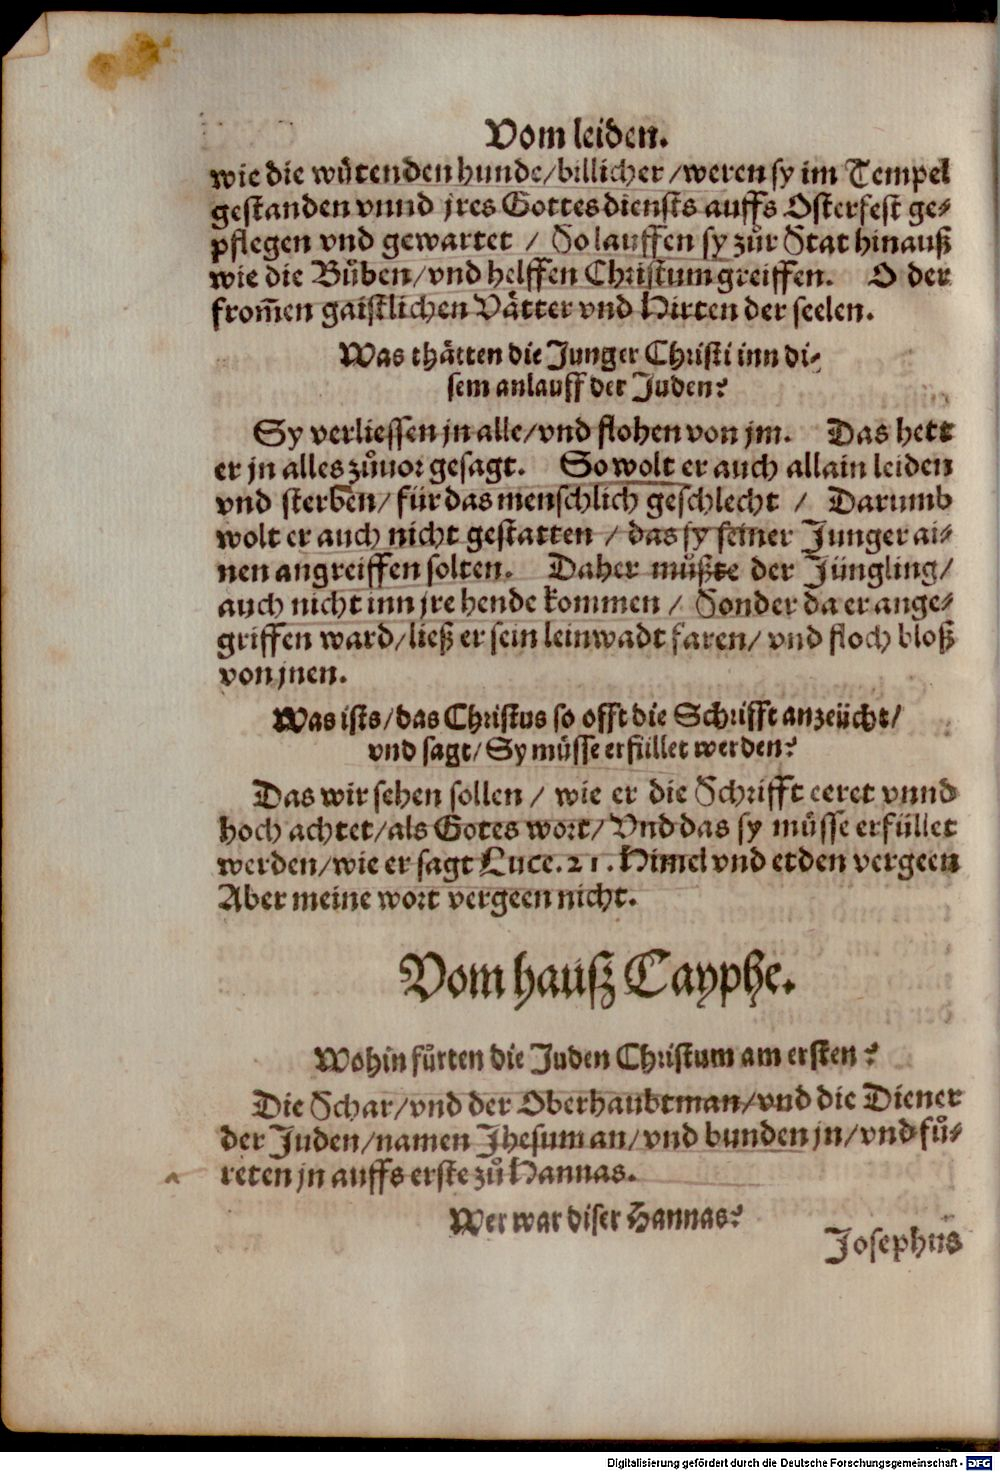 Vom leiden.
wie die wuͤtenden hunde/billicher/weren sy im Tempel
gestanden vnnd jres Gottesdiensts auffs Osterfest ge-
pflegen vnd gewartet / So lauffen sy zůr Stat hinauß
wie die Bůben/vnd helffen Christum greiffen. O der
from̃en gaistlichen Vaͤtter vnd Hirten der seelen.
Was thaͤtten die Junger Christi inn di-
sem anlauff der Juden?
Sy verliessen jn alle/vnd flohen von jm. Das hett
er jn alles zůuor gesagt. So wolt er auch allain leiden
vnd sterben/für das menschlich geschlecht / Darumb
wolt er auch nicht gestatten / das sy seiner Junger ai-
nen angreiffen solten. Daher muͤßte der Jüngling/
auch nicht inn jre hende kommen / Sonder da er ange-
griffen ward/ließ er sein leinwadt faren/ vnd floch bloß
von jnen.
Was ists/das Christus so offt die Schrifft anzeücht/
vnd sagt/Sy muͤsse erfüllet werden?
Das wir sehen sollen / wie er die Schrifft eeret vnnd
hoch achtet/als Gotes wort/Vnd das sy muͤsse erfüllet
werden/wie er sagt Luce.21.Himel vnd erden vergeen
Aber meine wort vergeen nicht.
Vom hauß Cayphe.
Wohin fuͤrten die Juden Christum am ersten?
Die Schar/vnd der Oberhaubtman/vnd die Diener
der Juden/namen Jhesum an/vnd bunden jn/vnd fů-
reten jn auffs erste zů Hannas.
Wer war diser Hannas?
Josephus
Digitalisierung gefördert durch die Deutsche Forschungsgemeinschaft - DFG